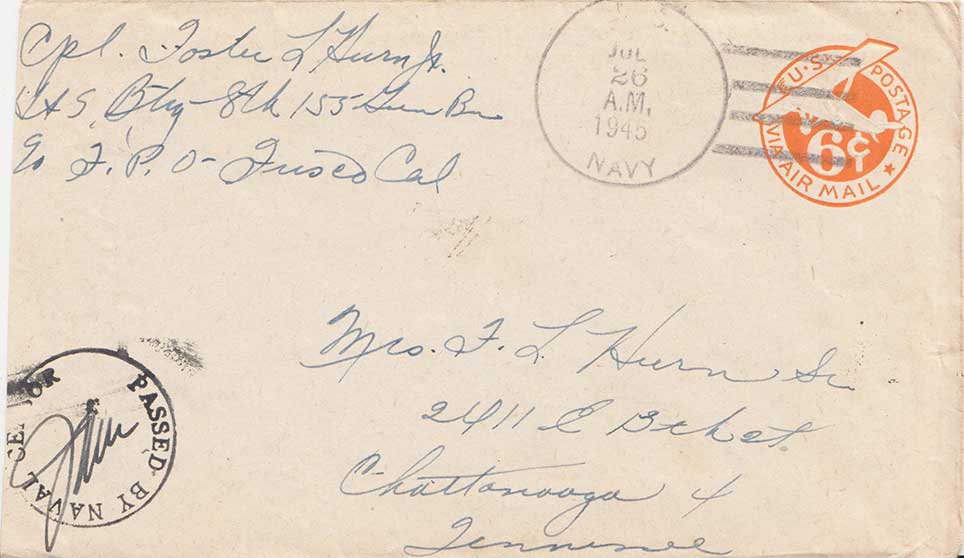 Cpl. Foster L Hurn Jr.
H & S. Btry 8th 155 Gun Bn
F. P. O Frisco Cal
U. S.
JUL
26
A.M.
1945
NAVY
U.S. POSTAGE
6¢
VIA AIR MAIL
Mrs. F. L. Hurn Sr
2411 E St.
Chattanooga 4
Tennessee
PASSED BY NAVAL CENSOR